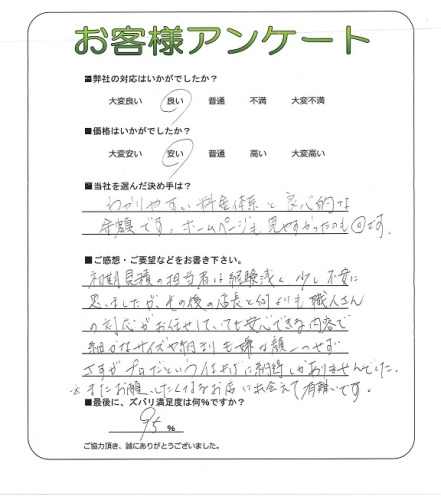 お客様アンケート
■弊社の対応はいかがでしたか？
大変良い 良い 普通 不満 大変不満
■価格はいかがでしたか？
大変安い 安い 普通 高い 大変高い
■当社を選んだ決め手は？
わかりやすい料金体系と良心的な
金額です。ホームページも見やすかったのも○です。
■ご感想・ご要望などをお書き下さい。
初期見積の担当者は経験浅く、少し不安に
思いましたが、その後の店長と何よりも職人さん
の対応がお任せしていても安心できる内容で
細かなサイズや納まりも嫌な顔一つせず
さすがプロだという仕上げに納得しかありませんでした。
※またお願いしたくなるお店に出会えて有難いです。
■最後に、ズバリ満足度は何%ですか？
95 %
ご協力頂き、誠にありがとうございました。